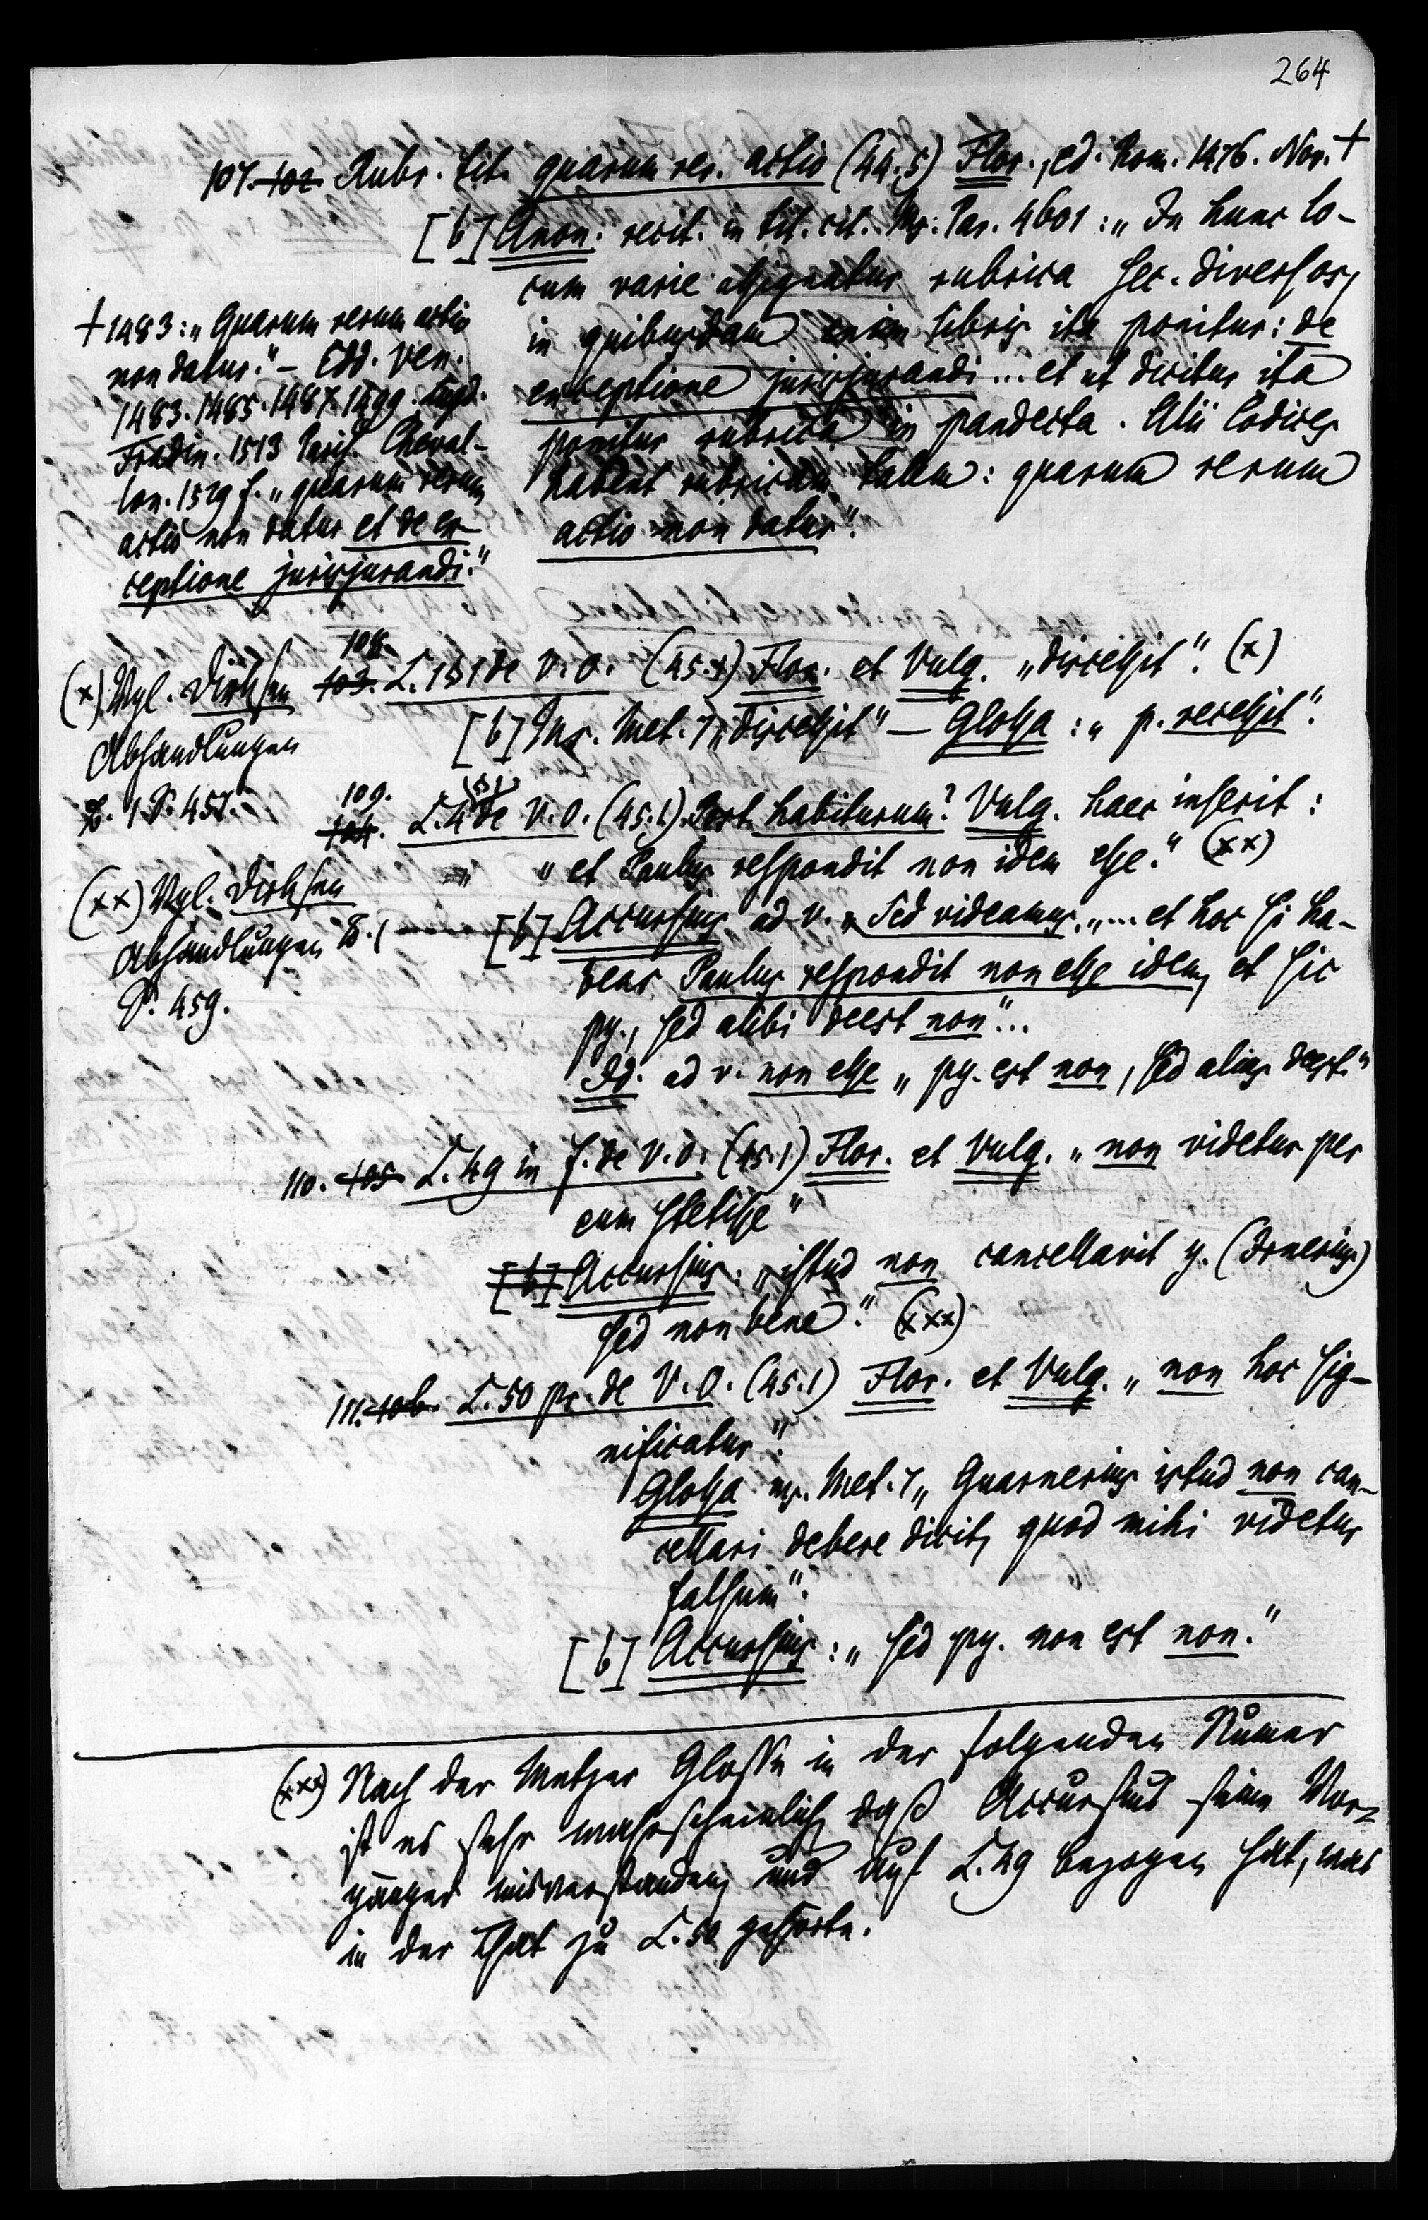 264
107. 102. Rubr. tit. quarum rer. actio (44.5) Flor., ed. Rom. 1476. Nor. +
[b] Anon. recit. in tit. cit. Ms. Par. 4601: „In hunc lo-
cum varie assignatur rubrica sec. diversos,
in quibusdam enim libris ita ponitur: de
exceptione jurisjurandi ... et ut dicitur ita
ponitur rubrica in pandecta. Alii codices
habent rubricam talem: quarum rerum
actio non datur“.
+ 1483: „Quarum rerum actio
non datur.“ – Edd. Ven.
1483. 1485. 1487. 1499. Lugd.
Fradin. 1513 Paris. Cheval-
lon. 1529 f. „quarum rerum
actio non datur et de ex-
ceptione jurisjurandi.“
108.
103. L. 131 de V. O. (45.1) Flor. et Vulg. „discessit“. (x)
[b] Ms. Met. 7 „discessit“ – Glossa: „p. recessit“.
(x) Vgl. Dirksen
Abhandlungen
B. 1 S. 457.
109.
104. L. 4 de V. O. (45.1) Post habiturum? Vulg. haec inserit:
„et Paulus respondit non idem esse.“ (xx)
[b] Accursius ad v. „Sed videamus. „... et hoc si ha-
beas Paulus respondit non esse idem, et sic
py., sed alibi deest non“...
Id. ad v. non esse „py. est non, sed aliis deest.“
(xx) Vgl. Dirksen
Abhandlungen B. 1
S. 459.
110. 105. L. 49 in f. de V. O. (45.1) Flor. et Vulg. „non videtur per
eum stetisse“
[b] Accursius: „istud non cancellavit y. (Irnerius)
sed non bene“. (xxx)
111. 106. L. 50 pr. de V. O. (45.1) Flor. et Vulg. „non hoc sig-
nificatur“.
Glossa ms. Met. 7 „Guarnerius istud non can-
cellari debere dicit, quod mihi videtur
falsum“.
[b] Accursius: „sed py. non est non.“
(xxx) Nach der Metzer Glosse in der folgenden Numer
ist es sehr wahrscheinlich, daß Accursius seine Vor-
gänger misverstanden, und auf L. 49 bezogen hat, was
in der That zu L. 50 gehörte.